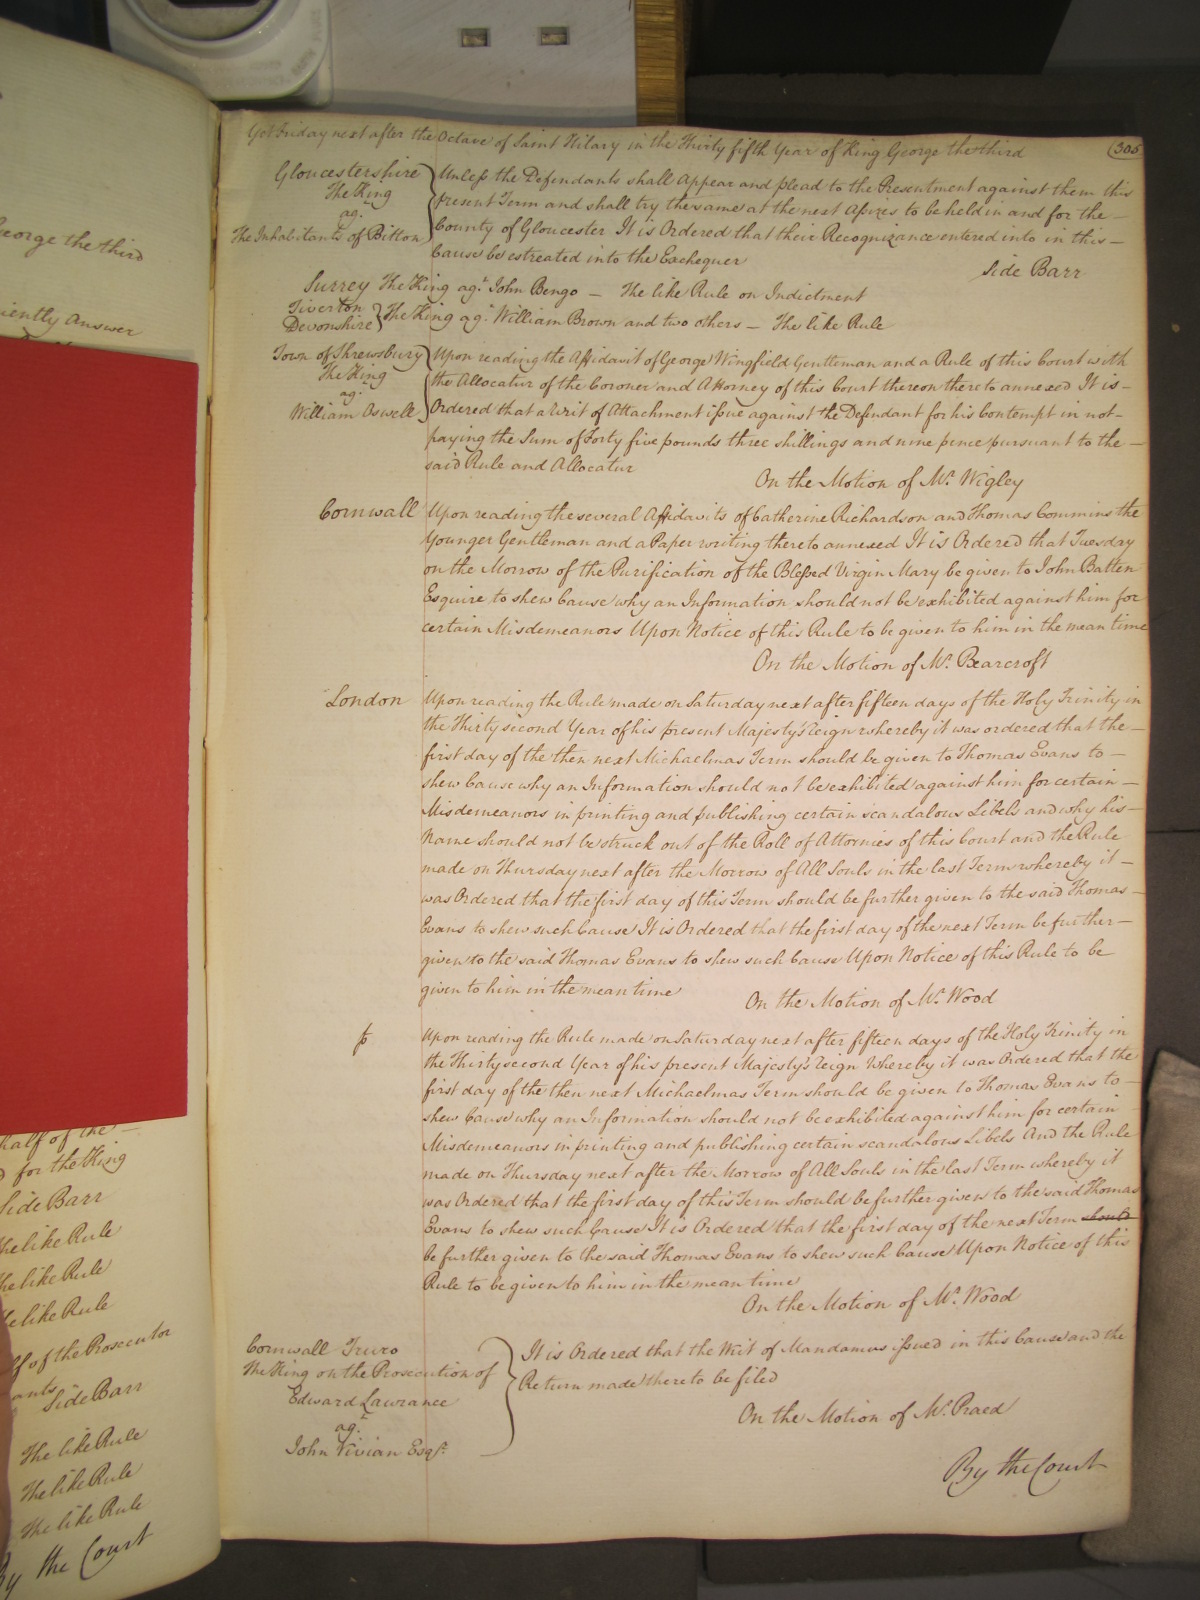 George the third
iently Answer
half of the —
d for the King
Side Barr
The like Rule
The like Rule
The like Rule
lf of the Prosecutor
ants Side Barr
The like Rule
The like Rule
The like Rule
By the Court
Yet Friday next after the Octave of Saint Hilary in the Thirty fifth Year of King George the third
305
Gloucestershire
The King
agt.
The Inhabitants of Bitton
Unless the Defendants shall Appear and plead to the Presentment against them this
present Term and shall try the same at the next Assizes to be held in and for the —
County of Gloucester It is Ordered that their Recognizance entered into in this —
Cause be estreated into the Exchequer
Side Barr
Surrey The King agt. John Bengo — The like Rule on Indictment
Tiverton
Devonshire } The King agt. William Brown and two others — The like Rule
Town of Shrewsbury
The King
agt.
William Oswell
Upon reading the Affidavit of George Wingfield Gentleman and a Rule of this Court with
the Allocatur of the Coroner and Attorney of this Court thereon thereto annexed It is —
Ordered that a Writ of Attachment issue against the Defendant for his Contempt in not —
paying the Sum of Forty five pounds three shillings and nine pence pursuant to the —
said Rule and Allocatur
On the Motion of Mr. Wigley
Cornwall
Upon reading the several Affidavits of Catherine Richardson and Thomas Commins the
Younger Gentleman and a Paper writing thereto annexed It is Ordered that Tuesday
on the Morrow of the Purification of the Blessed Virgin Mary be given to John Batten
Esquire to shew Cause why an Information should not be exhibited against him for
certain Misdemeanors Upon Notice of this Rule to be given to him in the mean time
On the Motion of Mr. Bearcroft
London
Upon reading the Rule made on Saturday next after fifteen days of the Holy Trinity in
the Thirty second Year of his present Majesty's reign whereby it was ordered that the —
first day of the then next Michaelmas Term should be given to Thomas Evans to —
shew Cause why an Information should not be exhibited against him for certain —
Misdemeanors in printing and publishing certain scandalous Libels and why his —
Name should not be struck out of the Roll of Attornies of this Court and the Rule
made on Thursday next after the Morrow of All Souls in the last Term whereby it —
was Ordered that the first day of this Term should be further given to the said Thomas —
Evans to shew such Cause It is Ordered that the first day of the next Term be further —
given to the said Thomas Evans to shew such Cause Upon Notice of this Rule to be
given to him in the mean time
On the Motion of Mr. Wood
Upon reading the Rule made on Saturday next after fifteen days of the Holy Trinity in
the Thirty second Year of his present Majesty's reign Whereby it was Ordered that the
first day of the then next Michaelmas Term should be given to Thomas Evans to —
shew Cause why an Information should not be exhibited against him for certain
Misdemeanors in printing and publishing certain scandalous Libels And the Rule
made on Thursday next after the Morrow of All Souls in the last Term whereby it
was Ordered that the first day of this Term should be further given to the said Thomas
Evans to shew such Cause It is Ordered that the first day of the next Term should
be further given to the said Thomas Evans to shew such Cause Upon Notice of this
Rule to be given to him in the mean time
On the Motion of Mr. Wood
Cornwall Truro
The King on the Prosecution of
Edward Lawrance
agt.
John Vivian Esqr.
It is Ordered that the Writ of Mandamus issued in this Cause and the
Return made thereto be filed
On the Motion of Mr. Praed
By the Court